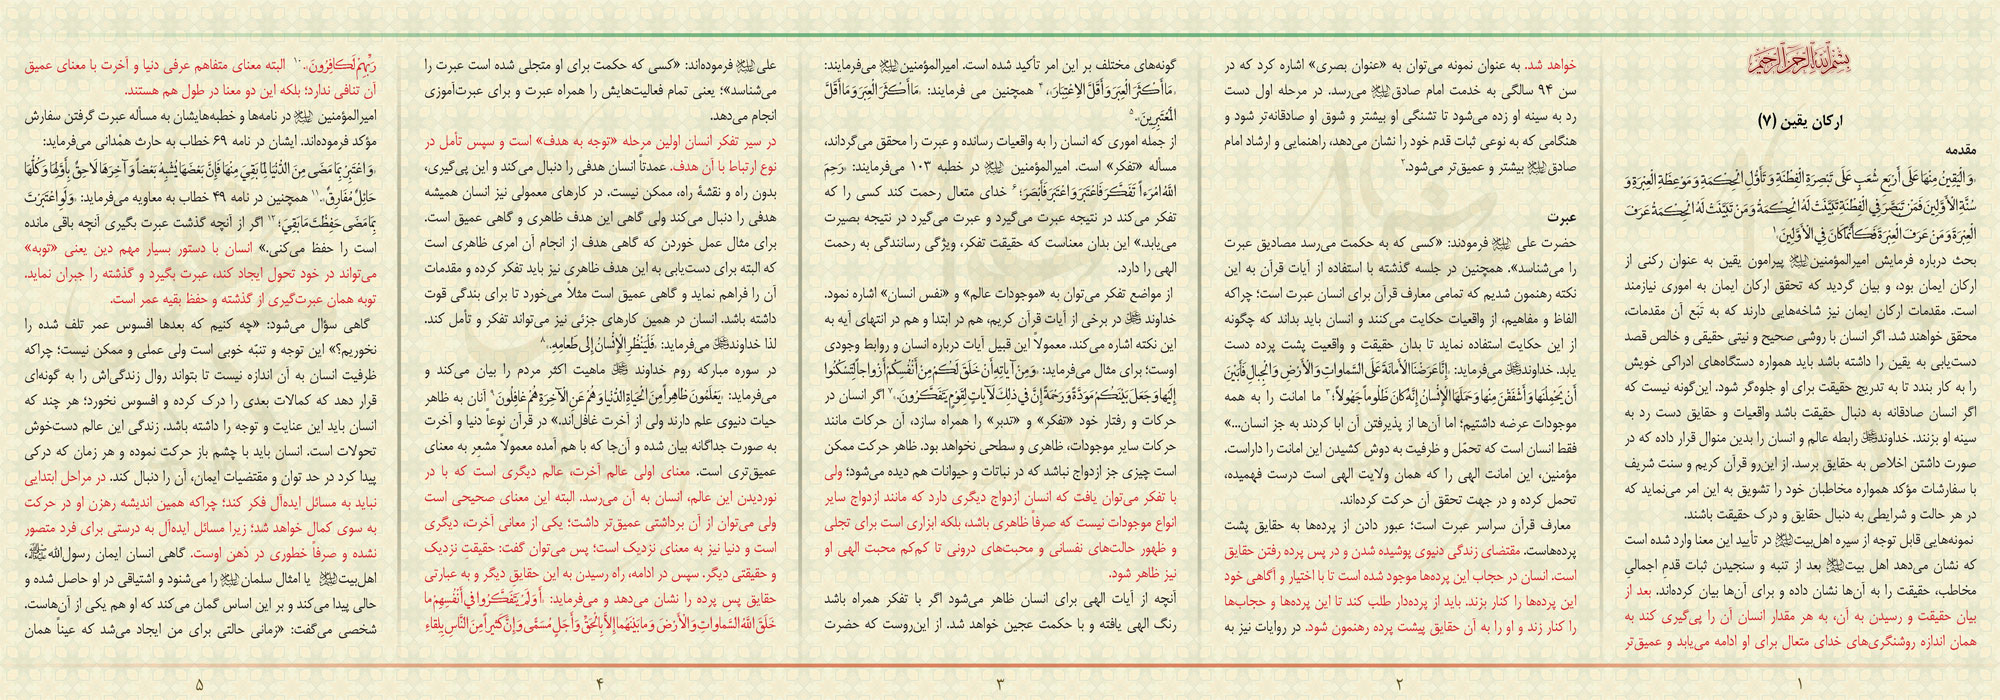 بِسْمِ اللهِ الرَّحْمٰنِ الرَّحِيمِ
ارکان یقین (۷)
مقدمه
وَالْيَقِينُ مِنْهَا عَلَى أَرْبَعِ شُعَبٍ عَلَى تَبْصِرَةِ الْفِطْنَةِ وَ تَأَوُّلِ الْحِكْمَةِ وَ مَوْعِظَةِ الْعِبْرَةِ وَ
سُنَّةِ الْأَوَّلِينَ فَمَنْ تَبَصَّرَ فِي الْفِطْنَةِ تَبَيَّنَتْ لَهُ الْحِكْمَةُ وَ مَنْ تَبَيَّنَتْ لَهُ الْحِكْمَةُ عَرَفَ
الْعِبْرَةَ وَ مَنْ عَرَفَ الْعِبْرَةَ فَكَأَنَّمَا كَانَ فِي الْأَوَّلِينَ.۱
بحث درباره فرمایش امیرالمؤمنین پیرامون یقین به عنوان رکنی از
ارکان ایمان بود، و بیان گردید که تحقق ارکان ایمان به اموری نیازمند
است. مقدمات ارکان ایمان نیز شاخه‌هایی دارند که به تَبَع آن مقدمات،
محقق خواهند شد. اگر انسان با روشی صحیح و نیتی حقیقی و خالص قصد
دست‌یابی به یقین را داشته باشد باید همواره دستگاه‌های ادراکی خویش
را به کار بندد تا به تدریج حقیقت برای او جلوه‌گر شود. این‌گونه نیست که
اگر انسان صادقانه به دنبال حقیقت باشد واقعیات و حقایق دست رد به
سینه او بزنند. خداوند رابطه عالم و انسان را بدین منوال قرار داده که در
صورت داشتن اخلاص به حقایق برسد. از این‌رو قرآن کریم و سنت شریف
با سفارشات مؤکد همواره مخاطبان خود را تشویق به این امر می‌نماید که
در هر حالت و شرایطی به دنبال حقایق و درک حقیقت باشند.
نمونه‌هایی قابل توجه از سیره اهل‌بیت در تأیید این معنا وارد شده است
که نشان می‌دهد اهل بیت بعد از تنبه و سنجیدن ثبات قدمِ اجمالیِ
مخاطب، حقیقت را به آن‌ها نشان داده و برای آن‌ها بیان کرده‌اند. بعد از
بیان حقیقت و رسیدن به آن، به هر مقدار انسان آن را پی‌گیری کند به
همان اندازه روشنگری‌های خدای متعال برای او ادامه می‌یابد و عمیق‌تر
۱
خواهد شد. به عنوان نمونه می‌توان به «عنوان بصری» اشاره کرد که در
سن ۹۴ سالگی به خدمت امام صادق می‌رسد. در مرحله اول دست
رد به سینه او زده می‌شود تا تشنگی او بیشتر و شوق او صادقانه‌تر شود و
هنگامی که به نوعی ثبات قدم خود را نشان می‌دهد، راهنمایی و ارشاد امام
صادق بیشتر و عمیق‌تر می‌شود.۲
عبرت
حضرت علی فرمودند: «کسی که به حکمت می‌رسد مصادیق عبرت
را می‌شناسد». همچنین در جلسه گذشته با استفاده از آیات قرآن به این
نکته رهنمون شدیم که تمامی معارف قرآن برای انسان عبرت است؛ چراکه
الفاظ و مفاهیم، از واقعیات حکایت می‌کنند و انسان باید بداند که چگونه
از این حکایت استفاده نماید تا بدان حقیقت و واقعیت پشت پرده دست
یابد. خداوند می‌فرماید: ﴿إِنَّا عَرَضْنَا الْأَمَانَةَ عَلَى السَّمَاوَاتِ وَ الْأَرْضِ وَ الْجِبَالِ فَأَبَيْنَ
أَنْ يَحْمِلْنَهَا وَ أَشْفَقْنَ مِنْهَا وَ حَمَلَهَا الْإِنْسَانُ إِنَّهُ كَانَ ظَلُوماً جَهُولاً﴾؛۳ ما امانت را به همه
موجودات عرضه داشتیم؛ اما آن‌ها از پذیرفتن آن ابا کردند به جز انسان...»
فقط انسان است که تحمّل و ظرفیت به دوش کشیدن این امانت را داراست.
مؤمنین، این امانت الهی را که همان ولایت الهی است درست فهمیده،
تحمل کرده و در جهت تحقق آن حرکت کرده‌اند.
معارف قرآن سراسر عبرت است؛ عبور دادن از پرده‌ها به حقایق پشت
پرده‌هاست. مقتضای زندگی دنیوی پوشیده شدن و در پس پرده رفتن حقایق
است. انسان در حجاب این پرده‌ها موجود شده است تا با اختیار و آگاهی خود
این پرده‌ها را کنار بزند. باید از پرده‌دار طلب کند تا این پرده‌ها و حجاب‌ها
را کنار زند و او را به آن حقایق پیشت پرده رهنمون شود. در روایات نیز به
۲
گونه‌های مختلف بر این امر تأکید شده است. امیرالمؤمنین می‌فرمایند:
﴿مَا أَكْثَرَ الْعِبَرَ وَ أَقَلَّ الِاعْتِبَارَ﴾،۴ همچنین می فرمایند: ﴿مَا أَكْثَرَ الْعِبَرَ وَ مَا أَقَلَّ
الْمُعْتَبِرِينَ﴾.۵
از جمله اموری که انسان را به واقعیات رسانده و عبرت را محقق می‌گرداند،
مسأله «تفکر» است. امیرالمؤمنین در خطبه ۱۰۳ می‌فرمایند: ﴿رَحِمَ
اللَّهُ امْرَءاً تَفَكَّرَ فَاعْتَبَرَ وَ اعْتَبَرَ فَأَبْصَرَ﴾؛۶ خدای متعال رحمت کند کسی را که
تفکر می‌کند در نتیجه عبرت می‌گیرد و عبرت می‌گیرد در نتیجه بصیرت
می‌یابد.» این بدان معناست که حقیقت تفکر، ویژگی رسانندگی به رحمت
الهی را دارد.
از مواضع تفکر می‌توان به «موجودات عالم» و «نفس انسان» اشاره نمود.
خداوند در برخی از آیات قرآن کریم، هم در ابتدا و هم در انتهای آیه به
این نکته اشاره می‌کند. معمولاً این قبیل آیات درباره انسان و روابط وجودی
اوست؛ برای مثال می‌فرماید: ﴿وَ مِنْ آيَاتِهِ أَنْ خَلَقَ لَكُمْ مِنْ أَنْفُسِكُمْ أَزْوَاجاً لِتَسْكُنُوا
إِلَيْهَا وَ جَعَلَ بَيْنَكُمْ مَوَدَّةً وَ رَحْمَةً إِنَّ فِي ذَلِكَ لَآيَاتٍ لِقَوْمٍ يَتَفَكَّرُونَ﴾.۷ اگر انسان در
حرکات و رفتار خود «تفکر» و «تدبر» را همراه سازد، آن حرکات مانند
حرکات سایر موجودات، ظاهری و سطحی نخواهد بود. ظاهر حرکت ممکن
است چیزی جز ازدواج نباشد که در نباتات و حیوانات هم دیده می‌شود؛ ولی
با تفکر می‌توان یافت که انسان ازدواج دیگری دارد که مانند ازدواج سایر
انواع موجودات نیست که صرفاً ظاهری باشد، بلکه ابزاری است برای تجلی
و ظهور حالت‌های نفسانی و محبت‌های درونی تا کم‌کم محبت الهی او
نیز ظاهر شود.
آنچه از آیات الهی برای انسان ظاهر می‌شود اگر با تفکر همراه باشد
رنگ الهی یافته و با حکمت عجین خواهد شد. از این‌روست که حضرت
۳
علی فرموده‌اند: «کسی که حکمت برای او متجلی شده است عبرت را
می‌شناسد»؛ یعنی تمام فعالیت‌هایش را همراه عبرت و برای عبرت‌آموزی
انجام می‌دهد.
در سیر تفکر انسان اولین مرحله «توجه به هدف» است و سپس تأمل در
نوع ارتباط با آن هدف. عمدتاً انسان هدفی را دنبال می‌کند و این پی‌گیری،
بدون راه و نقشهٔ راه، ممکن نیست. در کارهای معمولی نیز انسان همیشه
هدفی را دنبال می‌کند ولی گاهی این هدف ظاهری و گاهی عمیق است.
برای مثال عمل خوردن که گاهی هدف از انجام آن امری ظاهری است
که البته برای دست‌یابی به این هدف ظاهری نیز باید تفکر کرده و مقدمات
آن را فراهم نماید و گاهی عمیق است مثلاً می‌خورد تا برای بندگی قوت
داشته باشد. انسان در همین کارهای جزئی نیز می‌تواند تفکر و تأمل کند.
لذا خداوند می‌فرماید: ﴿فَلْيَنْظُرِ الْإِنْسَانُ إِلَى طَعَامِهِ﴾.۸
در سوره مبارکه روم خداوند ماهیت اکثر مردم را بیان می‌کند و
می‌فرماید: ﴿يَعْلَمُونَ ظَاهِراً مِنَ الْحَيَاةِ الدُّنْيَا وَ هُمْ عَنِ الْآخِرَةِ هُمْ غَافِلُونَ﴾۹ آنان به ظاهر
حیات دنیوی علم دارند ولی از آخرت غافل‌اند.» در قرآن نوعاً دنیا و آخرت
به صورت جداگانه بیان شده و آن‌جا که با هم آمده معمولاً مشعِر به معنای
عمیق‌تری است. معنای اولی عالم آخرت، عالم دیگری است که با در
نوردیدن این عالم، انسان به آن می‌رسد. البته این معنای صحیحی است
ولی می‌توان از آن برداشتی عمیق‌تر داشت؛ یکی از معانی آخرت، دیگری
است و دنیا نیز به معنای نزدیک است؛ پس می‌توان گفت: حقیقتِ نزدیک
و حقیقتی دیگر. سپس در ادامه، راه رسیدن به این حقایق دیگر و به عبارتی
حقایق پس پرده را نشان می‌دهد و می‌فرماید: ﴿أَ وَ لَمْ يَتَفَكَّرُوا فِي أَنْفُسِهِمْ مَا
خَلَقَ اللَّهُ السَّمَاوَاتِ وَ الْأَرْضَ وَ مَا بَيْنَهُمَا إِلَّا بِالْحَقِّ وَ أَجَلٍ مُسَمًّى وَ إِنَّ كَثِيراً مِنَ النَّاسِ بِلِقَاءِ
۴
رَبِّهِمْ لَكَافِرُونَ﴾.۱۰ البته معنای متفاهم عرفی دنیا و آخرت با معنای عمیق
آن تنافی ندارد؛ بلکه این دو معنا در طول هم هستند.
امیرالمؤمنین در نامه‌ها و خطبه‌هایشان به مسأله عبرت گرفتن سفارش
مؤکد فرموده‌اند. ایشان در نامه ۶۹ خطاب به حارث همْدانی می‌فرماید:
﴿وَ اعْتَبِرْ بِمَا مَضَى مِنَ الدُّنْيَا لِمَا بَقِيَ مِنْهَا فَإِنَّ بَعْضَهَا يُشْبِهُ بَعْضاً وَ آخِرَهَا لَاحِقٌ بِأَوَّلِهَا وَ كُلُّهَا
حَائِلٌ مُفَارِقٌ﴾.۱۱ همچنین در نامه ۴۹ خطاب به معاویه می‌فرماید: ﴿وَ لَوِ اعْتَبَرْتَ
بِمَا مَضَى حَفِظْتَ مَا بَقِيَ﴾؛۱۲ اگر از آنچه گذشت عبرت بگیری آنچه باقی مانده
است را حفظ می‌کنی.» انسان با دستور بسیار مهم دین یعنی «توبه»
می‌تواند در خود تحول ایجاد کند، عبرت بگیرد و گذشته را جبران نماید.
توبه همان عبرت‌گیری از گذشته و حفظ بقیه عمر است.
گاهی سؤال می‌شود: «چه کنیم که بعدها افسوس عمر تلف شده را
نخوریم؟» این توجه و تنبّه خوبی است ولی عملی و ممکن نیست؛ چراکه
ظرفیت انسان به آن اندازه نیست تا بتواند روال زندگی‌اش را به گونه‌ای
قرار دهد که کمالات بعدی را درک کرده و افسوس نخورد؛ هر چند که
انسان باید این عنایت و توجه را داشته باشد. زندگی این عالم دست‌خوش
تحولات است. انسان باید با چشم باز حرکت نموده و هر زمان که درکی
پیدا کرد در حد توان و مقتضیات ایمان، آن را دنبال کند. در مراحل ابتدایی
نباید به مسائل ایده‌آل فکر کند؛ چراکه همین اندیشه رهزن او در حرکت
به سوی کمال خواهد شد؛ زیرا مسائل ایده‌آل به درستی برای فرد متصور
نشده و صرفاً خطوری در ذهن اوست. گاهی انسان ایمان رسول‌الله،
اهل‌بیت یا امثال سلمان را می‌شنود و اشتیاقی در او حاصل شده و
حالی پیدا می‌کند و بر این اساس گمان می‌کند که او هم یکی از آن‌هاست.
شخصی می‌گفت: «زمانی حالتی برای من ایجاد می‌شد که عیناً همان
۵